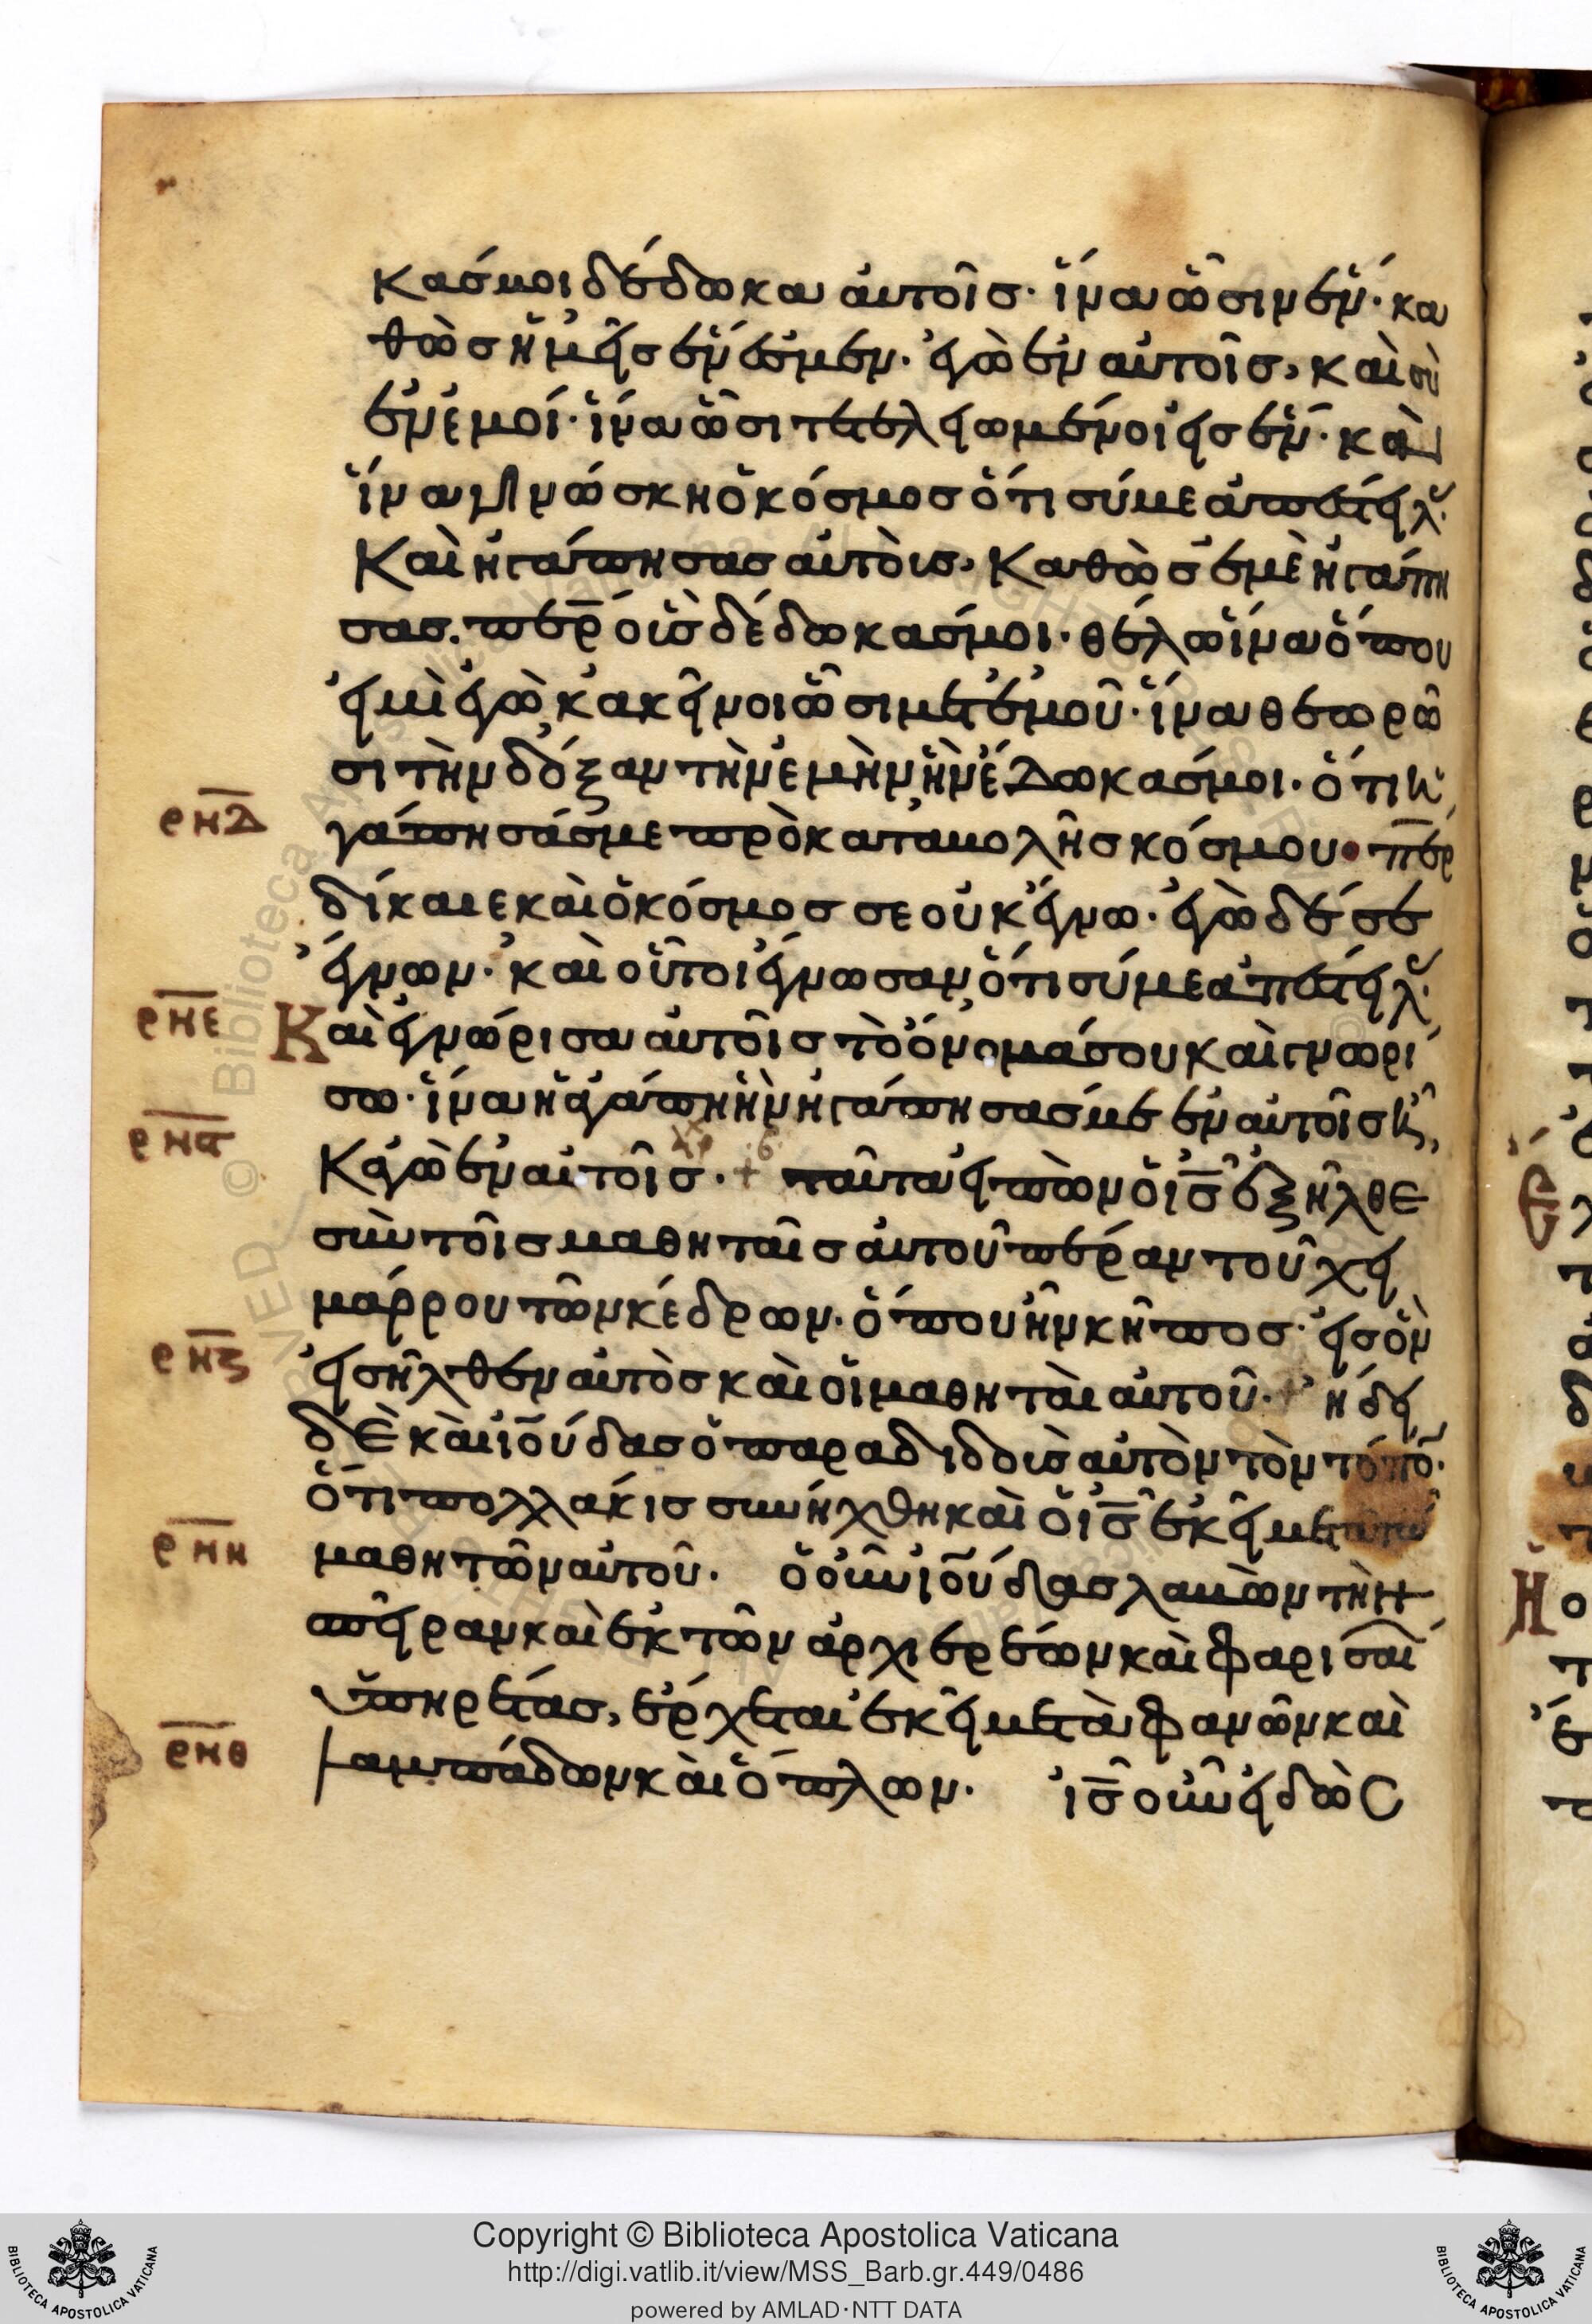 κασ μοι δέδωκα αὐτοῖσ· ἵνα ὦσιν ἕν· κα
θὼσ ἡμεῖσ ἕν ἐσμεν· ἐγὼ ἐν αὐτοῖσ, καὶ σὺ
ἐν ἐμοί· ἵνα ὦσι τετελειωμένοι εἰσ ἕν· καὶ
ἵνα γινώσκη ὁ κόσμοσ ὅτι σύ με ἀπέστειλ
Καὶ ἠγάπησασ αὐτοὺσ, καθὼσ ἐμὲ ἠγάπη
σασ. περ οὓσ δέδωκασ μοι· θέλω ἵνα ὅπου
εἰμὶ ἐγὼ κἀκεῖνοι ὦσι μετ ἐμοῦ· ἵνα θεωρῶ
σι τὴν δόξαν τὴν ἐμὴν ἣν ἔδωκασ μοι· ὅτι ἠ
ρπδ γάπησάσ με πρὸ καταβολῆσ κόσμου· περ
δίκαιε καὶ ὁ κόσμοσ σε οὐκ ἔγνω· ἐγὼ δέ σε
ἔγνων· καὶ οὗτοι ἔγνωσαν ὅτι σύ με ἀπέστειλ
ρπε Καὶ ἐγνώρισα αὐτοῖσ τὸ ὄνομά σου καὶ γνωρί
σω· ἵνα ἡ ἀγάπη ἣν ἠγάπησάσ με ἐν αὐτοῖσ ἦ,
ρπϛ Κἀγὼ ἐν αὐτοῖσ· + ταῦτα εἰπὼν ὁ ισ ἐξῆλθε
σὺν τοῖσ μαθηταῖσ αὐτοῦ πέραν τοῦ χει
μάρρου τῶν κέδρων· ὅπου ἦν κῆποσ· εἰσ ὃν
ρπζ εἰσῆλθεν αὐτὸσ καὶ οἱ μαθηταὶ αὐτοῦ· + ἤδει
δὲ καὶ ἰούδασ ὁ παραδιδοὺσ αὐτὸν τὸν τόπο·
ὅτι πολλακισ συνήχθη καὶ ὁ ισ ἐκεῖ μετὰ τῶ
ρπη μαθητῶν αὐτοῦ· ὁ οὖν ἰούδασ λαβὼν τὴν
σπεῖραν καὶ ἐκ τῶν ἀρχιερέων καὶ φαρισαί
ὑπηρέτασ, ἔρχεται ἐκεῖ μετὰ φανῶν καὶ
ρπθ λαμπάδων καὶ ὅπλων· ισ οὖν εἰδὼσ
Copyright © Biblioteca Apostolica Vaticana
http://digi.vatlib.it/view/MSS_Barb.gr.449/0486
powered by AMLAD·NTT DATA
BIBLIOTECA APOSTOLICA VATICANA
BIBLIOTECA APOSTOLICA VATICANA